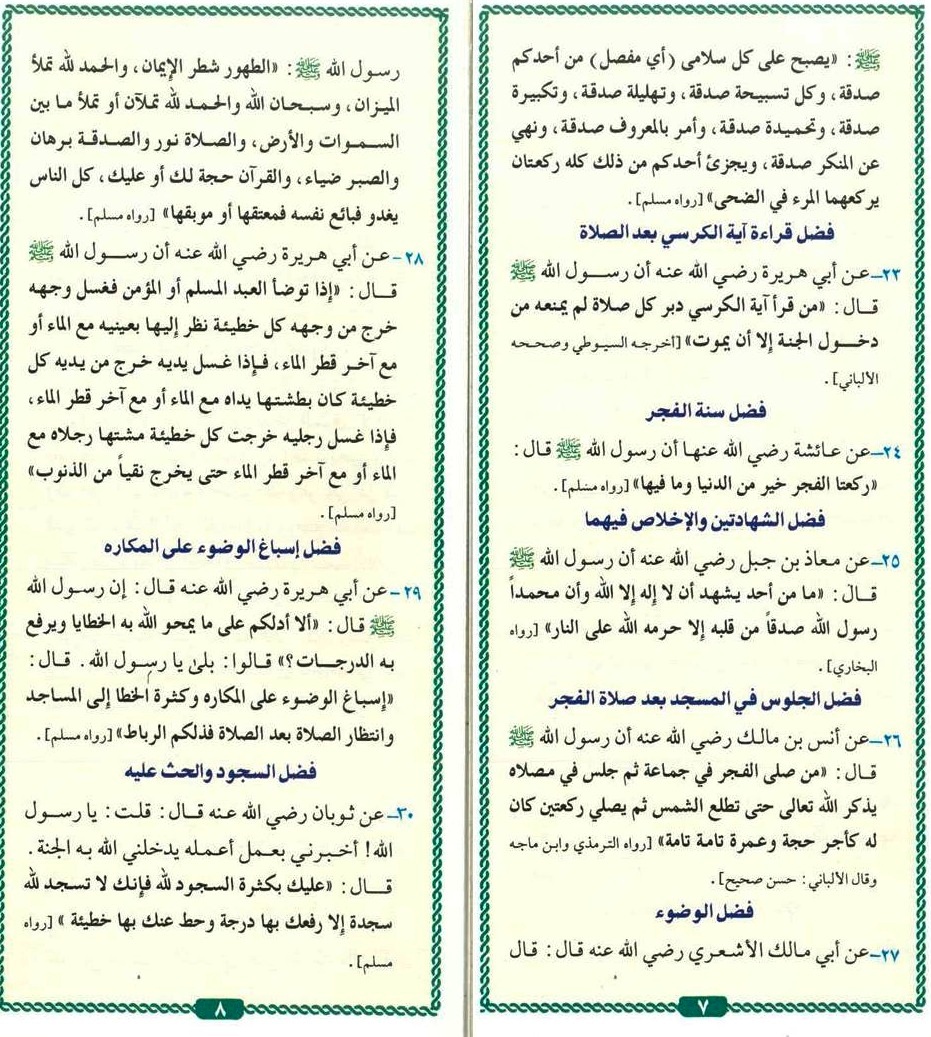 ﷺ: «يصبح على كل سلامى (أي مفصل) من أحدكم
صدقة، وكل تسبيحة صدقة، وتهليلة صدقة، وتكبيرة
صدقة، وتحميدة صدقة، وأمر بالمعروف صدقة، ونهي
عن المنكر صدقة، ويجزئ أحدكم من ذلك كله ركعتان
يركعهما المرء في الضحى» [رواه مسلم].
فضل قراءة آية الكرسي بعد الصلاة
٢٣ـ عن أبي هريرة رضي الله عنه أن رسول الله ﷺ
قال: «من قرأ آية الكرسي دبر كل صلاة لم يمنعه من
دخول الجنة إلا أن يموت» [أخرجه السيوطي وصححه
الألباني].
فضل سنة الفجر
٢٤ـ عن عائشة رضي الله عنها أن رسول الله ﷺ قال:
«ركعتا الفجر خير من الدنيا وما فيها» [رواه مسلم].
فضل الشهادتين والإخلاص فيهما
٢٥ـ عن معاذ بن جبل رضي الله عنه أن رسول الله ﷺ
قال: «ما من أحد يشهد أن لا إله إلا الله وأن محمداً
رسول الله صدقاً من قلبه إلا حرمه الله على النار» [رواه
البخاري].
فضل الجلوس في المسجد بعد صلاة الفجر
٢٦ـ عن أنس بن مالك رضي الله عنه أن رسول الله ﷺ
قال: «من صلى الفجر في جماعة ثم جلس في مصلاه
يذكر الله تعالى حتى تطلع الشمس ثم يصلي ركعتين كان
له كأجر حجة وعمرة تامة تامة» [رواه الترمذي وابن ماجه
وقال الألباني: حسن صحيح].
فضل الوضوء
٢٧ـ عن أبي مالك الأشعري رضي الله عنه قال: قال
٧
رسول الله ﷺ: «الطهور شطر الإيمان، والحمد لله تملأ
الميزان، وسبحان الله والحمد لله تملآن أو تملأ ما بين
السموات والأرض، والصلاة نور والصدقة برهان
والصبر ضياء، والقرآن حجة لك أو عليك، كل الناس
يغدو فبائع نفسه فمعتقها أو موبقها» [رواه مسلم].
٢٨ـ عن أبي هريرة رضي الله عنه أن رسول الله ﷺ
قال: «إذا توضأ العبد المسلم أو المؤمن فغسل وجهه
خرج من وجهه كل خطيئة نظر إليها بعينيه مع الماء أو
مع آخر قطر الماء، فإذا غسل يديه خرج من يديه كل
خطيئة كان بطشتها يداه مع الماء أو مع آخر قطر الماء،
فإذا غسل رجليه خرجت كل خطيئة مشتها رجلاه مع
الماء أو مع آخر قطر الماء حتى يخرج نقياً من الذنوب»
[رواه مسلم].
فضل إسباغ الوضوء على المكاره
٢٩ـ عن أبي هريرة رضي الله عنه قال: إن رسول الله
ﷺ قال: «ألا أدلكم على ما يمحو الله به الخطايا ويرفع
به الدرجات؟» قالوا: بلى يا رسول الله. قال:
«إسباغ الوضوء على المكاره وكثرة الخطا إلى المساجد
وانتظار الصلاة بعد الصلاة فذلكم الرباط» [رواه مسلم].
فضل السجود والحث عليه
٣٠ـ عن ثوبان رضي الله عنه قال: قلت: يا رسول
الله! أخبرني بعمل أعمله يدخلني الله به الجنة.
قال: «عليك بكثرة السجود لله فإنك لا تسجد لله
سجدة إلا رفعك بها درجة وحط عنك بها خطيئة» [رواه
مسلم].
٨